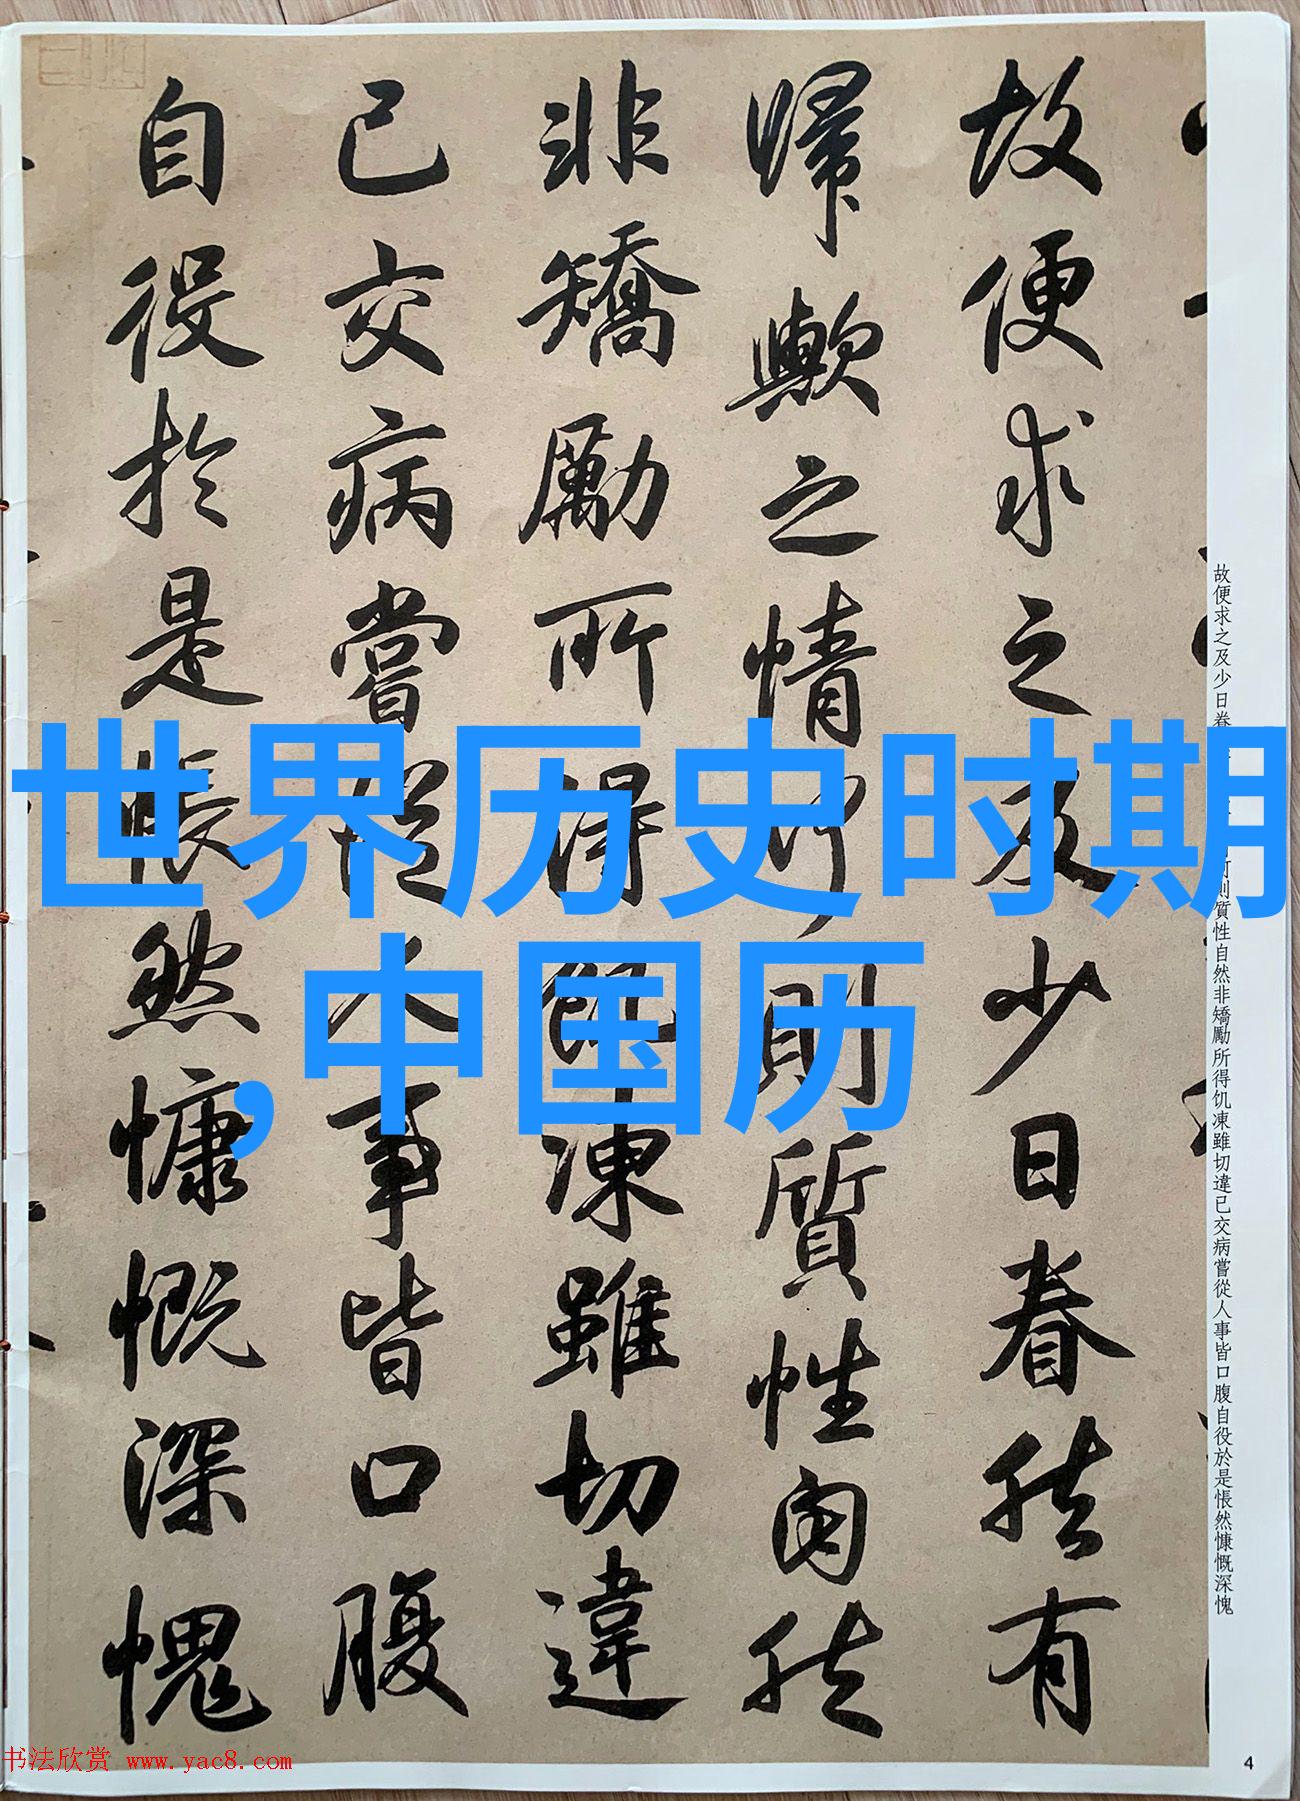 故便求之及少日眷然有
歸歟之情何則質性自然
非矯勵所得飢凍雖切違
已交病嘗從人事皆口腹
自役於是悵然慷慨深愧
世界历史时期
,中国历
故便求之及少日眷 則質性自然非矯勵所得饥凍雖切違已交病嘗從人事皆口腹自役於是悵然慷慨深愧
书法欣赏 www.yac8.com
4